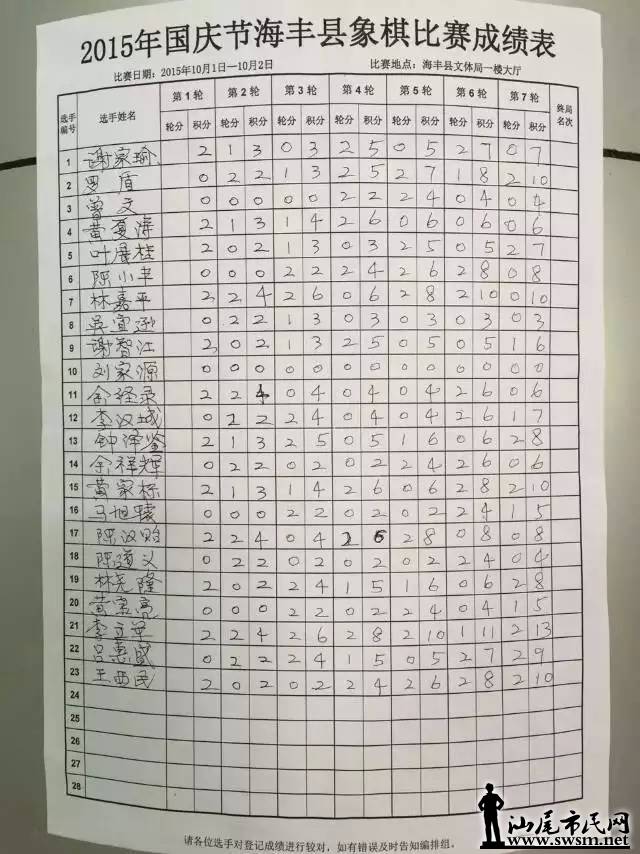 2015年国庆节海丰县象棋比赛成绩表
比赛日期：2015年10月1日—10月2日 比赛地点：海丰县文体局一楼大厅
选手编号 选手姓名 第1轮 第2轮 第3轮 第4轮 第5轮 第6轮 第7轮 终局名次
轮分 积分 轮分 积分 轮分 积分 轮分 积分 轮分 积分 轮分 积分 轮分 积分
1 谢家瑜 2 1 3 0 3 2 5 0 5 2 7 0 7
2 罗盾 0 2 2 1 3 2 5 2 7 1 8 2 10
3 曾文 0 0 0 0 0 2 2 2 4 0 4 0 4
4 黄夏涛 2 1 3 1 4 2 6 0 6 0 6 0 6
5 叶展桂 2 0 2 1 3 0 3 2 5 0 5 2 7
6 陈小丰 0 0 0 2 2 2 4 2 6 2 8 0 8
7 林嘉平 2 2 4 2 6 0 6 2 8 2 10 0 10
8 吴宜 0 2 2 1 3 0 3 0 3 0 3 0 3
9 谢智江 2 0 2 1 3 2 5 0 5 0 5 1 6
10 刘家源 0 0 0 0 0 0 0 0 0 0 0 0 0
11 余经录 2 2 4 0 4 0 4 0 4 2 6 0 6
12 李汉城 0 2 2 2 4 0 4 0 4 2 6 1 7
13 钟泽鉴 2 1 3 2 5 0 5 1 6 0 6 2 8
14 余祥辉 0 2 2 0 2 0 2 2 4 2 6 0 6
15 黄家标 2 1 3 1 4 2 6 0 6 2 8 2 10
16 马旭 0 0 0 2 2 0 2 0 2 2 4 1 5
17 陈汉 2 2 4 0 4 2 6 2 8 0 8 0 8
18 陈道义 0 2 2 0 2 0 2 0 2 2 4 0 4
19 林尧隆 2 0 2 2 4 1 5 1 6 0 6 2 8
20 黄家亮 0 0 0 2 2 0 2 2 4 0 4 1 5
21 李立军 2 2 4 2 6 2 8 2 10 1 11 2 13
22 吕惠盛 0 2 2 2 4 1 5 0 5 2 7 2 9
23 王西民 2 0 2 0 2 2 4 2 6 2 8 2 10
24
25
26
27
28
请各位选手对登记成绩进行较对，如有错误及时告知编排组。
汕尾市民网
www.swsm.net